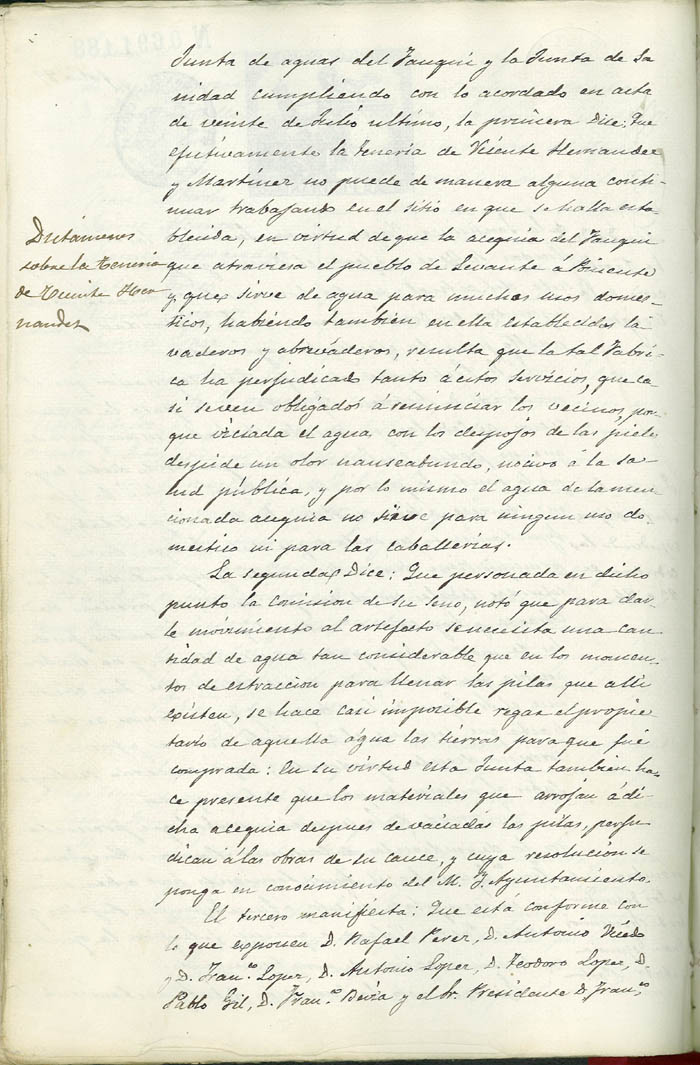 Junta de aguas del Fauquí y la Junta de Sa
nidad cumpliendo con lo acordado en acta
de veinte de Julio ultimo, la primera Dice: Que
efectivamente la Teneria de Vicente Hernandez
y Martínez no puede de manera alguna conti
nuar trabajando en el sitio en que se halla esta
blecida, en virtud de que la acequia del Fauquí
que atraviesa el pueblo de Levante á Poniente
y que sirve de agua para muchos usos domes
ticos, habiendo tambien en ella establecidos la
vaderos y abrevaderos, resulta que la tal Fabri
ca ha perjudicado tanto á estos servicios, que ca
si se ven obligados á renunciar los vecinos, por
que viciada el agua con los despojos de las pieles
despide un olor nauseabundo, nocivo á la sa
lud pública, y por lo mismo el agua de la men
cionada acequia no sirve para ningun uso do
mestico ni para las caballerias.
La segunda Dice: Que personada en dicho
punto la Comision de su seno, notó que para dar
le movimiento al artefacto se necesita una can
tidad de agua tan considerable que en los momen
tos de estraccion para llenar las pilas que alli
existen, se hace casi imposible regar el propie
tario de aquella agua las tierras para que fué
comprada: En su virtud esta Junta tambien ha
ce presente que los materiales que arrojan á di
cha acequia despues de vaciadas las pilas, perju
dican á las obras de su cauce, y cuya resolucion se
ponga en conocimiento del M. I. Ayuntamiento.
El tercero manifiesta: Que está conforme con
lo que exponen D. Rafael Perez, D. Antonio Vicedo
y D. Fran.co Lopez, D. Antonio Lopez, D. Teodoro Lopez, D.
Pablo Gil, D. Fran.co Devia y el Sr. Presidente D. Fran.co
Dictámenes
sobre la Teneria
de Vicente Her
nandez